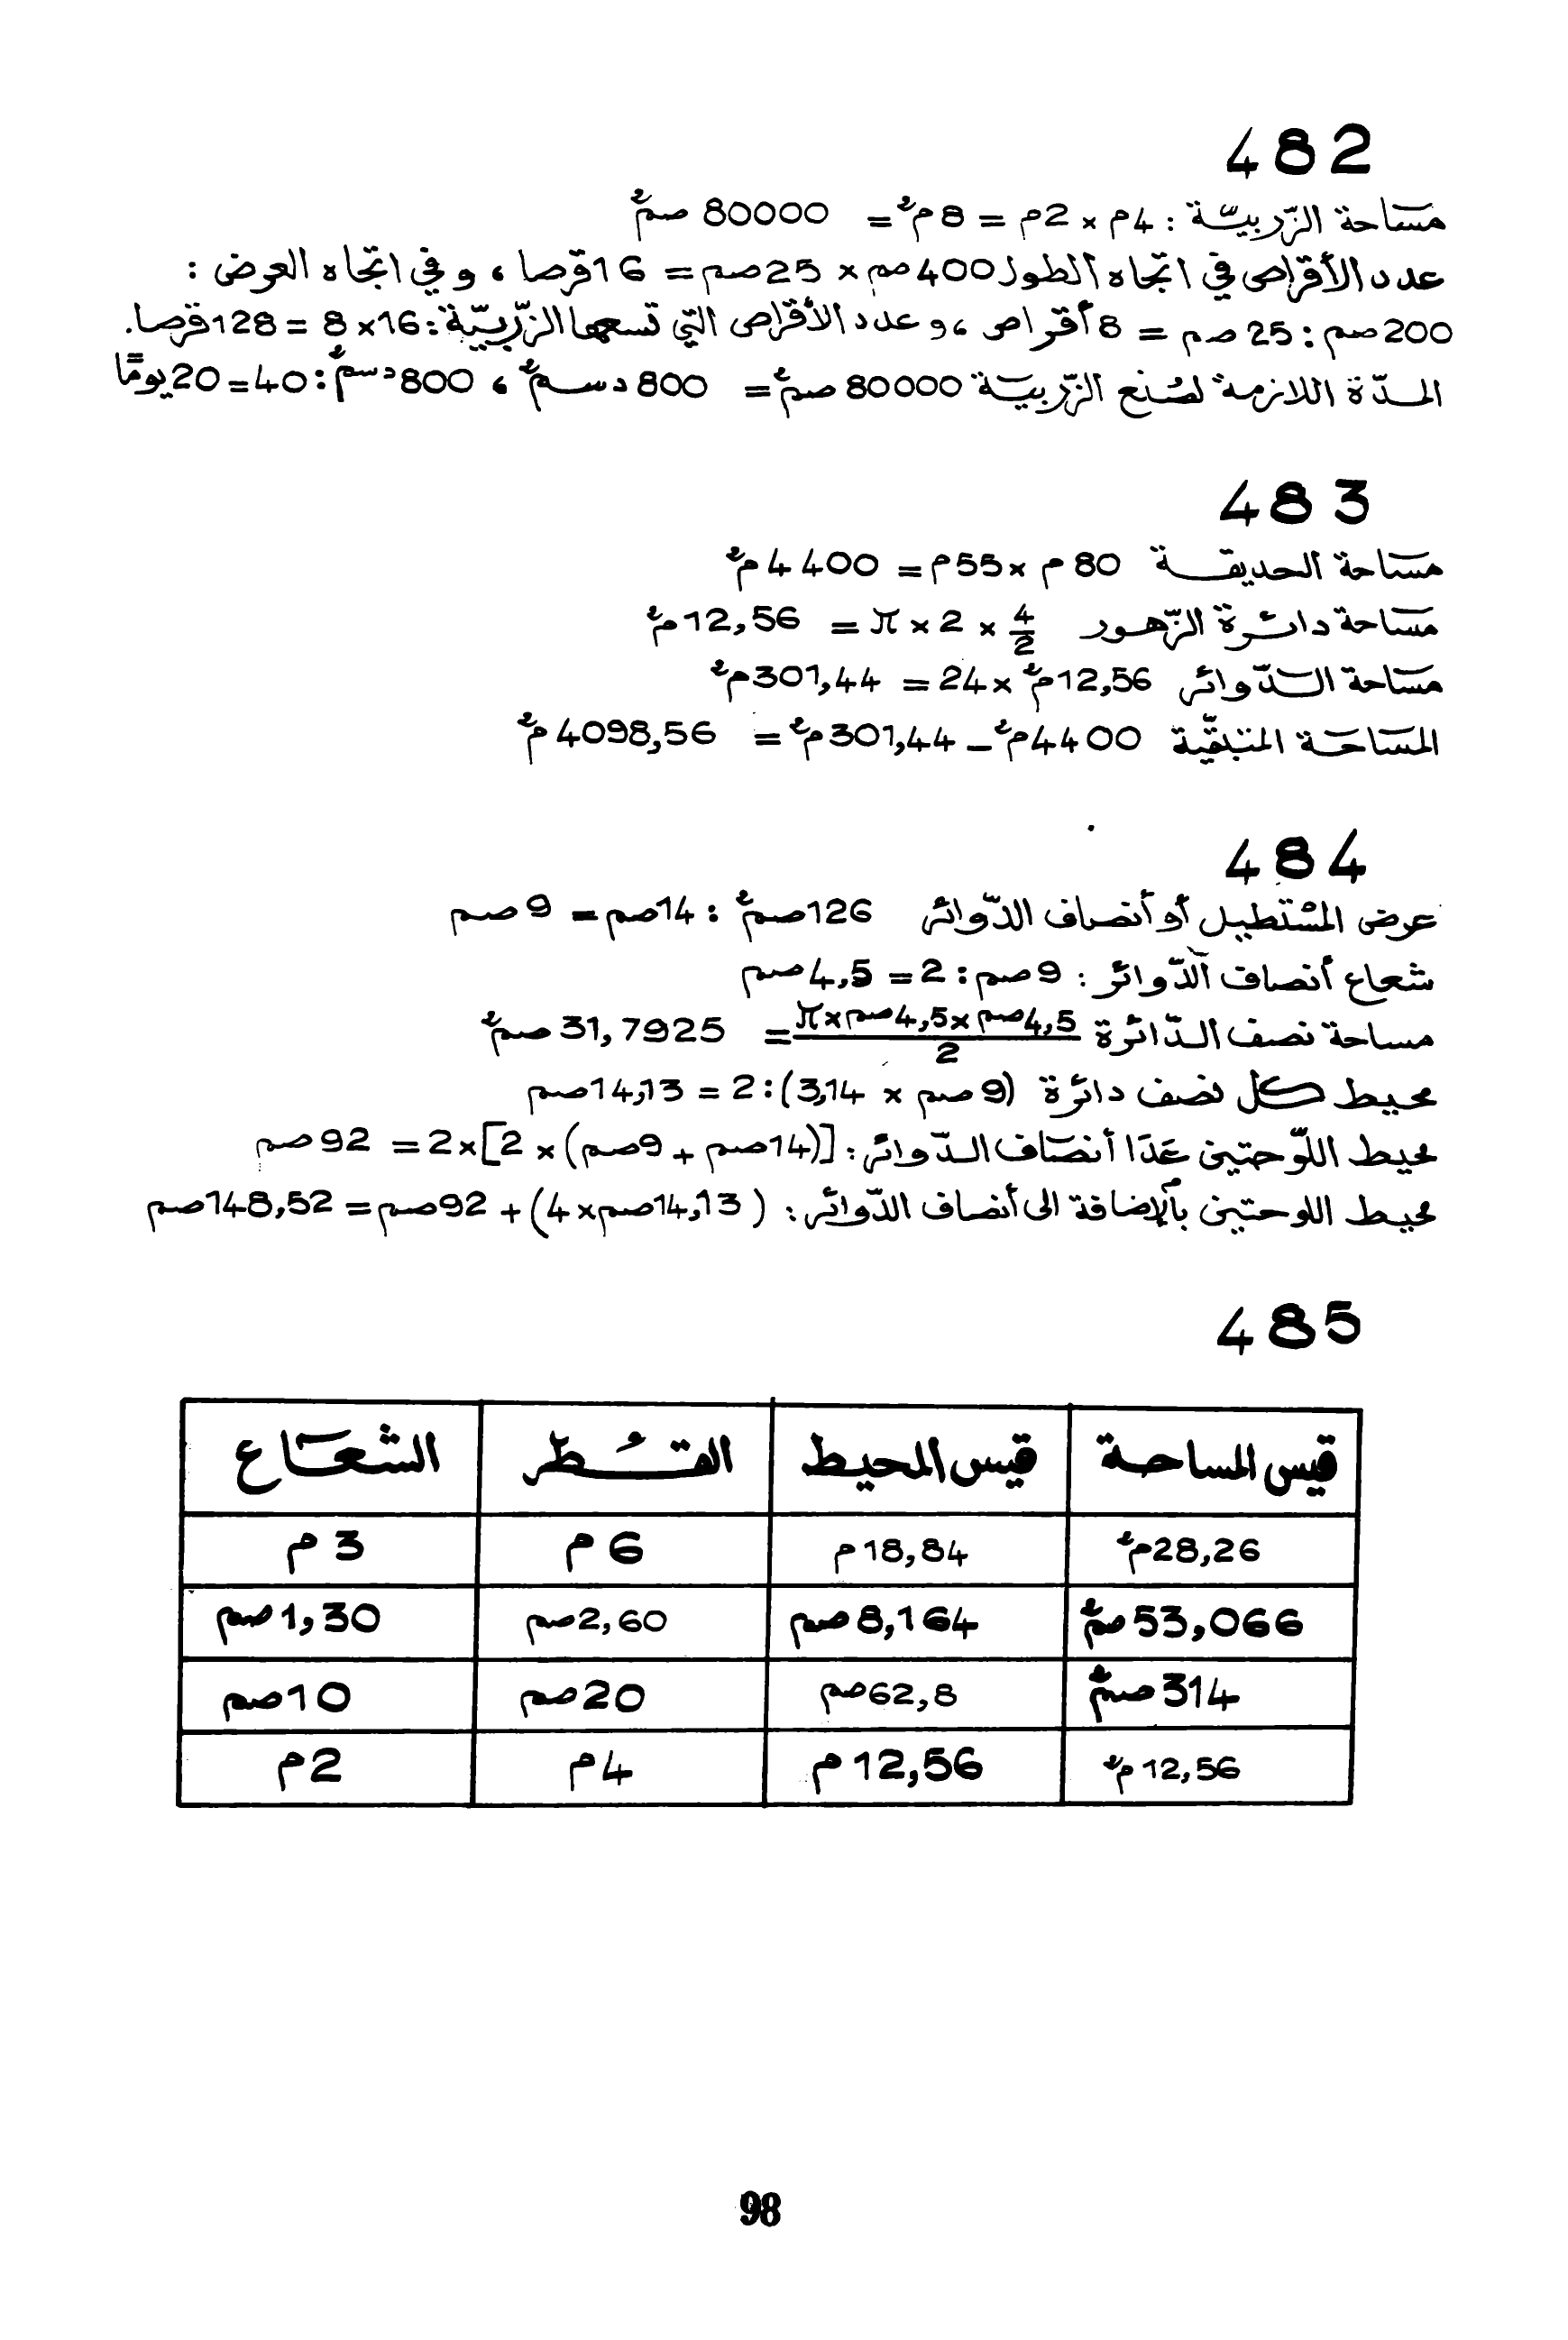 482
مساحة الزّربيّة : 4م × 2م = 8م² = 80000 صم²
عدد الأقراص في اتجاه الطول 400صم × 25صم = 16قرصا ، و في اتجاه العرض :
200صم : 25 صم = 8 أقراص ، و عدد الأقراص التي تسعها الزّربيّة : 16× 8 = 128قرصا.
المدّة اللازمة لصنع الزّربيّة 80000 صم² = 800 دسم² ، 800دسم² : 40 = 20 يومًا
483
مساحة الحديقة 80 م × 55م = 4400م²
مساحة دائرة الزّهور 4/2 × 2 × π = 12,56م²
مساحة الدّوائر 12,56م² × 24 = 301,44م²
المساحة المتبقّية 4400م² – 301,44م² = 4098,56م²
484
عرض المستطيل أو أنصاف الدّوائر 126صم² : 14صم = 9صم
شعاع أنصاف الدّوائر : 9صم : 2 = 4,5صم
مساحة نصف الدّائرة 4,5صم × 4,5صم × π / 2 = 31,7925 صم²
محيط كل نصف دائرة (9صم × 3,14) : 2 = 14,13صم
محيط اللّوحتين عَدَا أنصاف الدّوائر : [(14صم + 9صم) × 2] × 2 = 92صم
محيط اللوحتين بالإضافة الى أنصاف الدّوائر : (14,13صم × 4) + 92صم = 148,52صم
485
قيس المساحة قيس المحيط القُطر الشّعاع
28,26م² 18,84م 6م 3م
53,066صم² 8,164صم 2,60صم 1,30صم
314صم² 62,8صم 20صم 10صم
12,56م² 12,56م 4م 2م
98